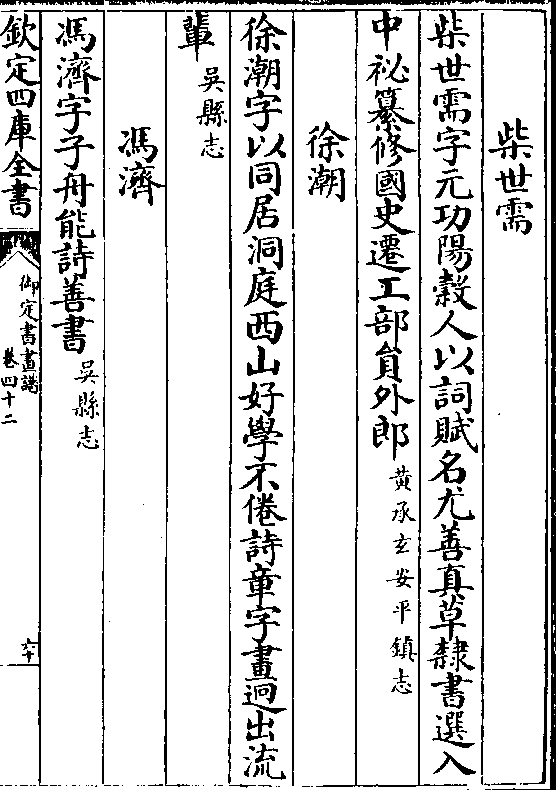 柴世需
柴世需字元功陽穀人以詞賦名尤善真草隸書選入
中祕纂修國史遷工部員外郎黄承玄安平鎮志
徐潮
徐潮字以同居洞庭西山好學不倦詩章字畫迥出流
輩吳縣志
馮濟
馮濟字子舟能詩善書吳縣志
欽定四庫全書
御定書畫譜
卷四十二
六十